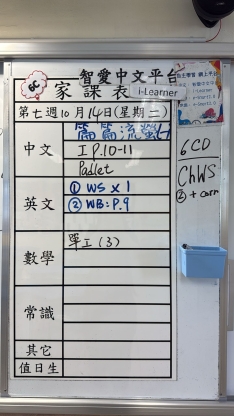 智愛中文平台
6C
家課表
i-Learner
第七週10月14日(星期二)
中文
篇篇流螢
I P.10-11
Padlet
英文
① WS x 1
② WB: P.9
數學
單I (3)
常識
其它
值日生
6CD
ChWS
② + corr